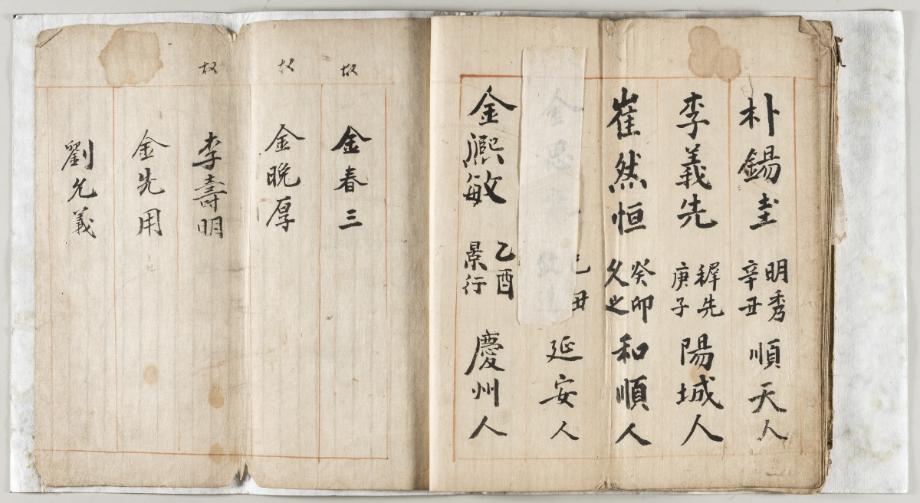 朴錫圭 明秀 辛丑 順天人
李義先 穉先 庚子 陽城人
崔然恒 癸卯 久之 和順人
金思 丑 延安人
金熙敏 乙酉 景行 慶州人
故 金春三
故 金晩厚
故 李壽明
金先用
劉允義